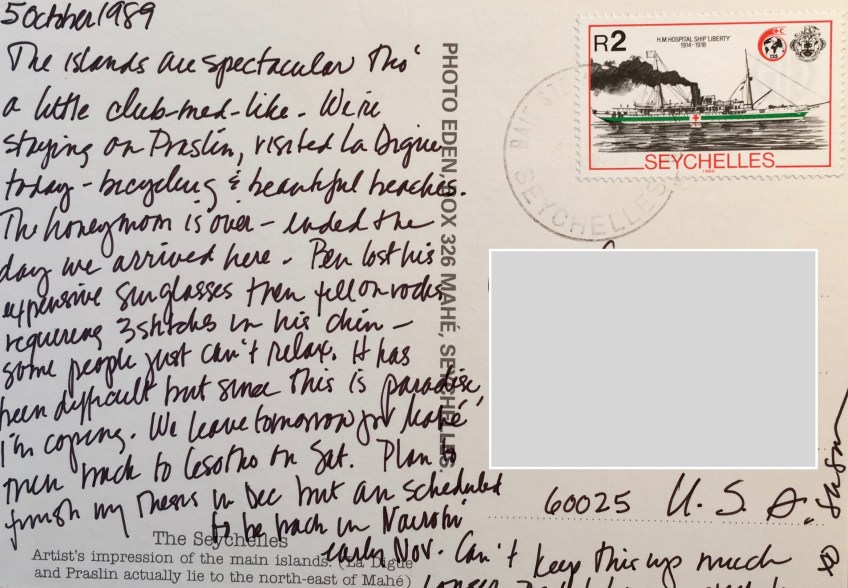 5 October 1989
The islands are spectacular tho'
a little club-med-like. We're
staying on Praslin, visited La Digue
today - bicycling & beautiful beaches.
The honeymoon is over - ended the
day we arrived here. Ben lost his
expensive sunglasses then fell on rocks
requiring 3 stitches in his chin -
some people just can't relax. It has
been difficult but since this is paradise,
I'm coping. We leave tomorrow for Mahé
then back to Lesotho on Sat. Plan to
finish my thesis in Dec but am scheduled
to be back in Nairobi
early Nov. Can't keep this up much
longer
The Seychelles
Artist's impression of the main islands. (La Digue
and Praslin actually lie to the north-east of Mahé)
PHOTO EDEN, BOX 326 MAHÉ, SEYCHELLES.
R2
H.M. HOSPITAL SHIP LIBERTY
1914-1918
SEYCHELLES
1988
BAIE STE
SEYCHELLES
60025 U.S.A.
XO Susan